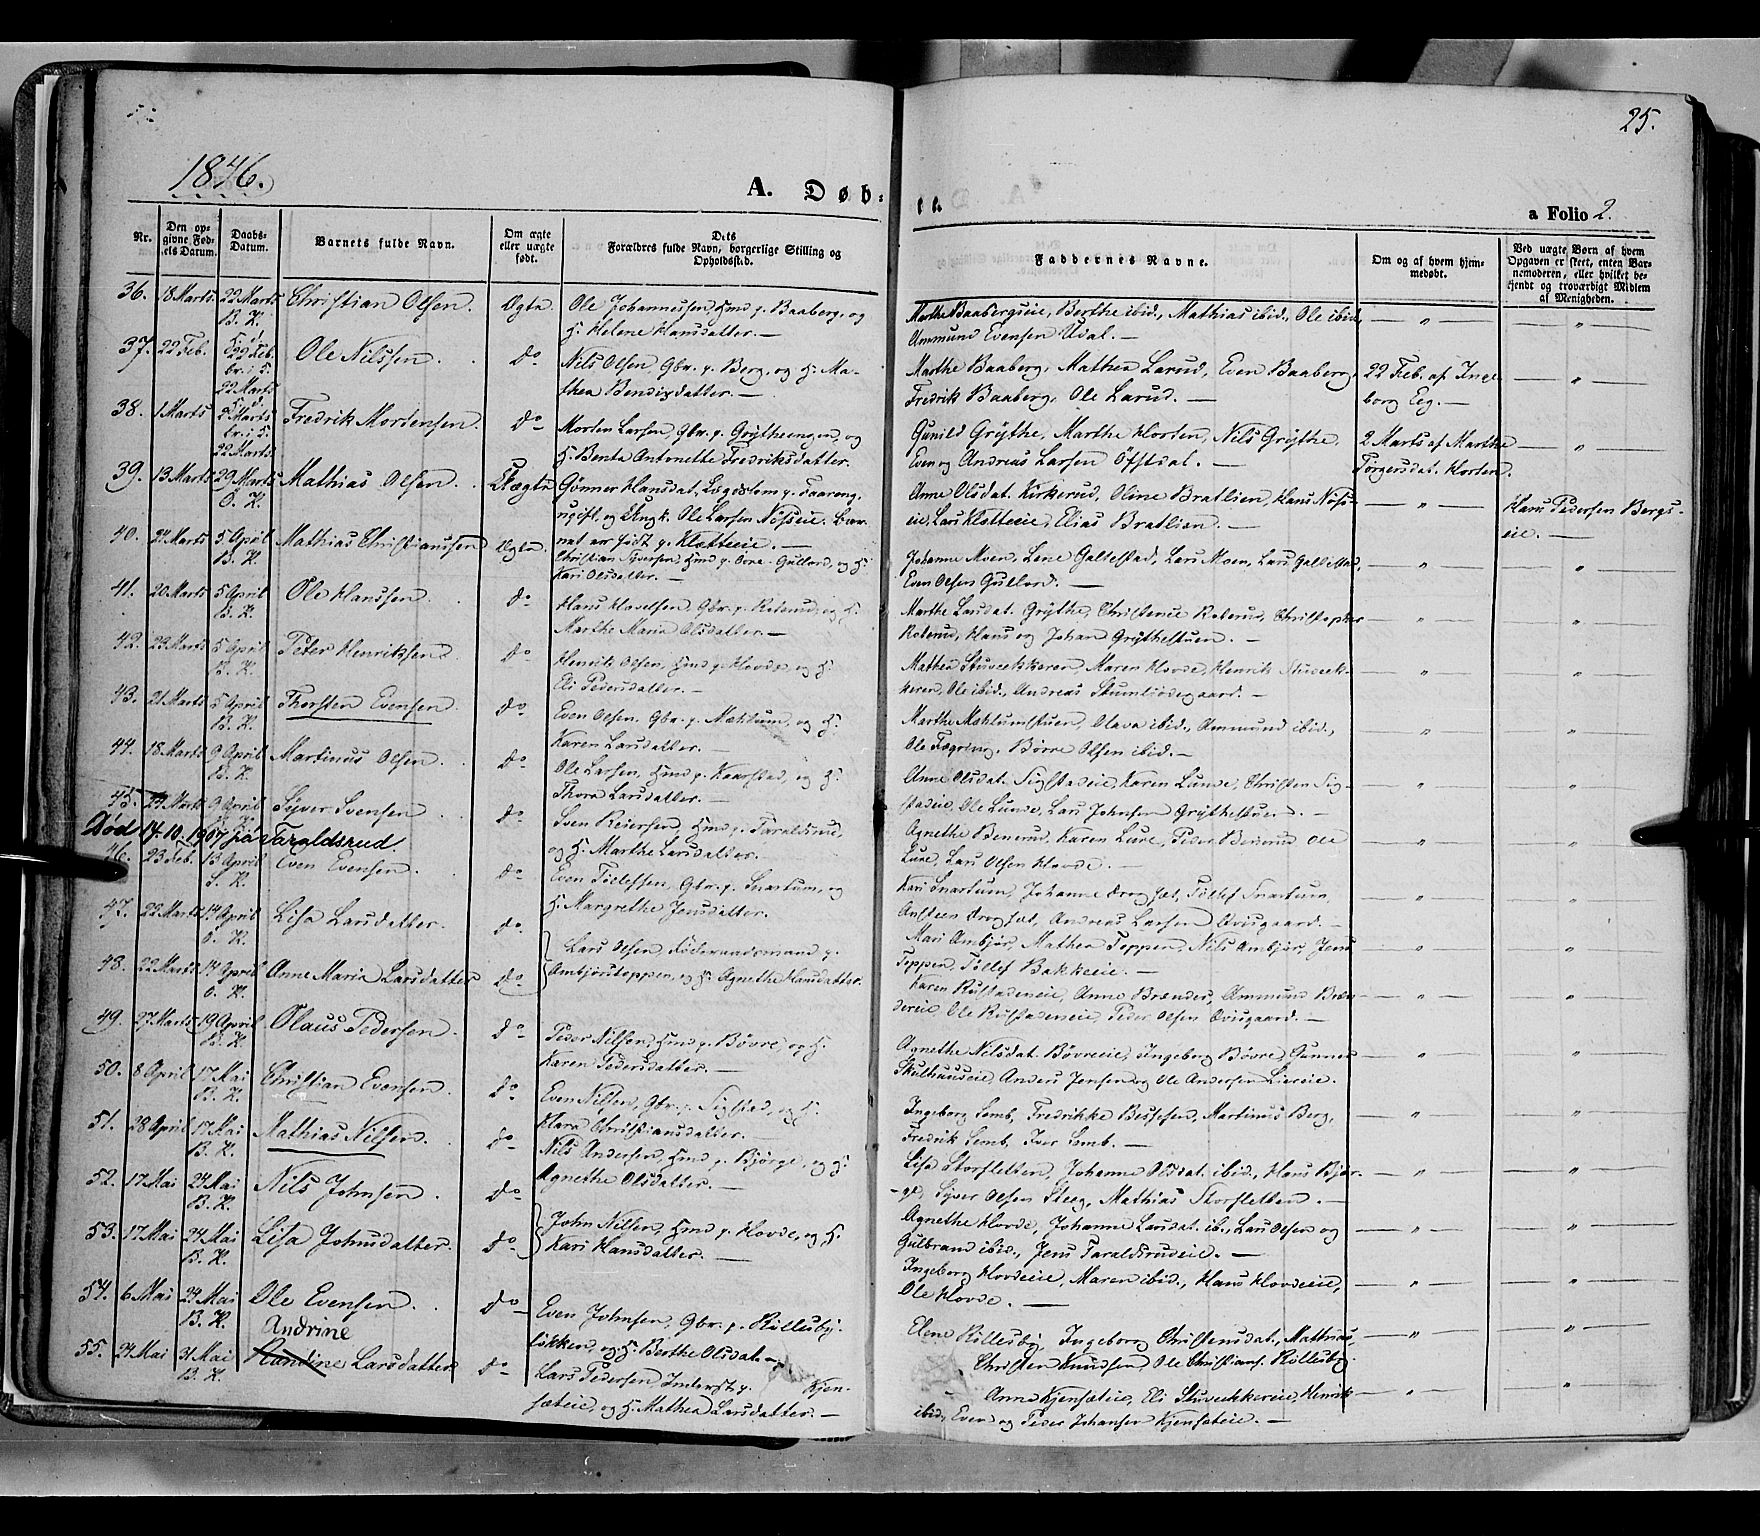 25.
1846.
A. Døb:
te.
a Folio 2.
Nr.
Den op-
givne Fød-
sels Datum.
Daabs-
Datum.
Barnets fulde Navn.
Om ægte
eller uægte
født.
Dets
Forældres fulde Navn, borgerlige Stilling og
Opholdssted.
Faddernes Navne.
Om og af hvem hjem-
medøbt.
Ved uægte Børn af hvem
Opgaven er skeet, enten Bar-
nemoderen, eller hvilket be-
kjendt og troværdigt Midlem
af Menigheden.
36. 18 Marts 22 Marts Christian Olsen. Ægte. Ole Johannessen, Hmd p. Baaberg, og
B. K. H: Helene Hansdatter. —
Marthe Baabergseie, Berthe ibid., Mathias ibid., Ole ibid,
Ammund Evensen Udal. —
37. 22 Feb. 22 Feb. Ole Nilssen. do Nils Olsen, Gbr. p. Berg, og H: Ma-
br. i S.
22 Marts
thea Bendixdatter. —
Marthe Baaberg, Mathea Larud, Even Baaberg,
Fredrik Baaberg, Ole Larud. —
22 Feb. af Inge
borg Eeg. —
38. 1 Marts 2 Marts Fredrik Mortensen. do Morten Larsen, Gbr. p. Grÿtheengen, og
br. i S.
22 Marts
H: Benta Antonette Fredriksdatter.
Gunild Grÿthe, Marthe Klorten, Nils Grÿthe,
Even og Andreas Larsen Öfstdal. —
2 Marts af Marthe
Torgersdat. Klorten.
39. 13 Marts 29 Marts Mathias Olsen. Uægte Gønner Hansdat. Lægdslem p. Faareng,
Ö. K. ugift, og Ungk. Ole Larsen Nøfseie. Bar-
net er født p. Kletteeie. —
Anne Olsdat. Kirkerud, Oline Bratlien, Hans Nøfs-
eie, Lars Kletteeie, Elias Bratlien. —
Hans Pedersen Bergs-
eie. —
40. 24 Marts 5 April Mathias Christianssen Ægte. Christian Iversen, Hmd p. Gullord, og H:
B. K. Kari Olsdatter. —
Johanne Moen, Lene Galtestad, Lars Moen, Lars Galtestad,
Even Olsen Gullord. —
41. 20 Marts 5 April Ole Hanssen. do Hans Havelsen, Gbr. p. Roterud, og H.
B. K. Marthe Maria Olsdatter. —
Marthe Larsdat. Grÿthe, Christence Roterud, Christopher
Roterud, Hans og Johan Grÿthestuen. —
42. 23 Marts 5 April Peter Henriksen. do Henrik Olsen, Hmd p. Klovde, og H.
B. K. Eli Pedersdatter. —
Mathea Stuvekkeren, Maren Klovde, Henrik Stuvek-
keren, Ole ibid., Andreas Stumlsødegaard. —
43. 21 Marts 5 April Thorsten Evensen. do Even Olsen, Gbr. p. Mæhlum, og H.
B. K. Karen Larsdatter. —
Marthe Mæhlumstuen, Olava ibid., Ammund ibid.,
Ole Fegring, Børre Olsen ibid. —
44. 18 Marts 9 April Martinus Olsen. do Ole Larsen, Hmd p. Kaarstad, og H.
B. K. Thora Larsdatter. —
Anne Olsdat. Sigstadeie, Karen Lunde, Christen Sig-
stadeie, Ole Lunde, Lars Johnsen Grÿthestuen. —
45. 24 Marts 9 April Syver Svensen. do Sven Reiersen, Hmd p. Taraldsrud,
Død 14. 10. 1907 fra Taraldsrud.
og H. Marthe Larsdatter. —
Agnethe Benerud, Karen Lure, Peder Benerud, Ole
Lure, Lars Olsen Klovde. —
46. 23 Feb. 13 April Even Evensen. do Even Tollefsen, Gbr. p. Snartum, og
S. K. H. Margrethe Jensdatter.
Kari Snartum, Johanne Drogset, Tollef Snartum,
Austeen Drogset, Andreas Larsen Öviugaard. —
47. 22 Marts 14 April Lisa Larsdatter. do
Ö. K. Lars Olsen, Føderaadsmand p.
Mari Ambjør, Mathea Toppen, Nils Ambjør, Jens
Toppen, Tollef Bakkeeie. —
48. 22 Marts 14 April Anne Maria Larsdatter do Ambjörstoppen, og H. Agnethe Hansdatter.
Ö. K.
Karen Rustadeneie, Anne Brænder, Ammund Bræn-
dereie, Ole Rustadeneie, Peder Olsen Öviugaard. —
49. 27 Marts 19 April Olaus Pedersen. do Peder Nilsen, Hmd p. Bövre, og H.
B. K. Karen Pedersdatter. —
Agnethe Nilsdat. Bövreeie, Ingeborg Bövre, Gunner
Skulhuuseie, Anders Jensen og Ole Andersen Liereie.
50. 8 April 17 Mai Christian Evensen. do Even Nilsen, Gbr. p. Sigstad, og H.
B. K. Klara Christiansdatter. —
Ingeborg Lemb, Fredrikke Bessesen, Martinus Berg,
Fredrik Lemb, Iver Lemb. —
51. 28 April 17 Mai Mathias Nilsen. do Nils Andersen, Hmd p. Bjørge, og H.
B. K. Agnethe Olsdatter. —
Lisa Storsletten, Johanne Olsdat. ibid., Hans Bjør-
ge, Syver Olsen Steeg, Mathias Storsletten. —
52. 17 Mai 24 Mai Nils Johnsen. do
B. K. John Nilsen, Hmd p. Klovde, og H.
Agnethe Klovde, Johanne Larsdat. ib., Lars Olsen og
Gulbrand ibid., Jens Taraldsrudeie. —
53. 17 Mai 24 Mai Lisa Johnsdatter. do Kari Hansdatter. —
B. K.
Ingeborg Klovdeeie, Maren ibid., Hans Klovdeeie,
Ole Klovde. —
54. 6 Mai 24 Mai Ole Evensen. do Even Johnsen, Gbr. p. Röllesby-
B. K. løkken, og H. Berthe Olsdat. —
Elene Röllesby, Ingeborg Christensdat., Mathias
Christen Knudsen, Ole Christians. Röllesby.
Andrine
55. 24 Mai 31 Mai Randine Larsdatter do Lars Pedersen, Inderst p. Kjen-
B. K. seteie, og H. Mathea Larsdatter. —
Anne Kjenseteie, Eli Stuvekkereie, Henrik
ibid., Even og Peder Johansen Kjenseteie. —